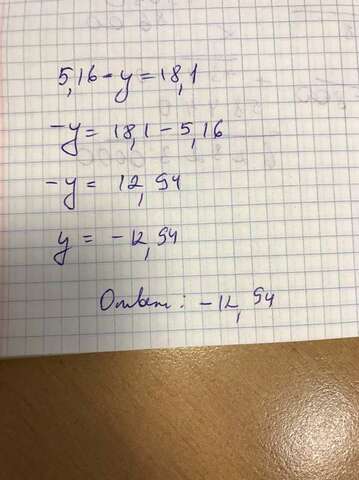 5,16 - y = 18,1
-y = 18,1 - 5,16
-y = 12,94
y = -12,94
Ответ: -12,94